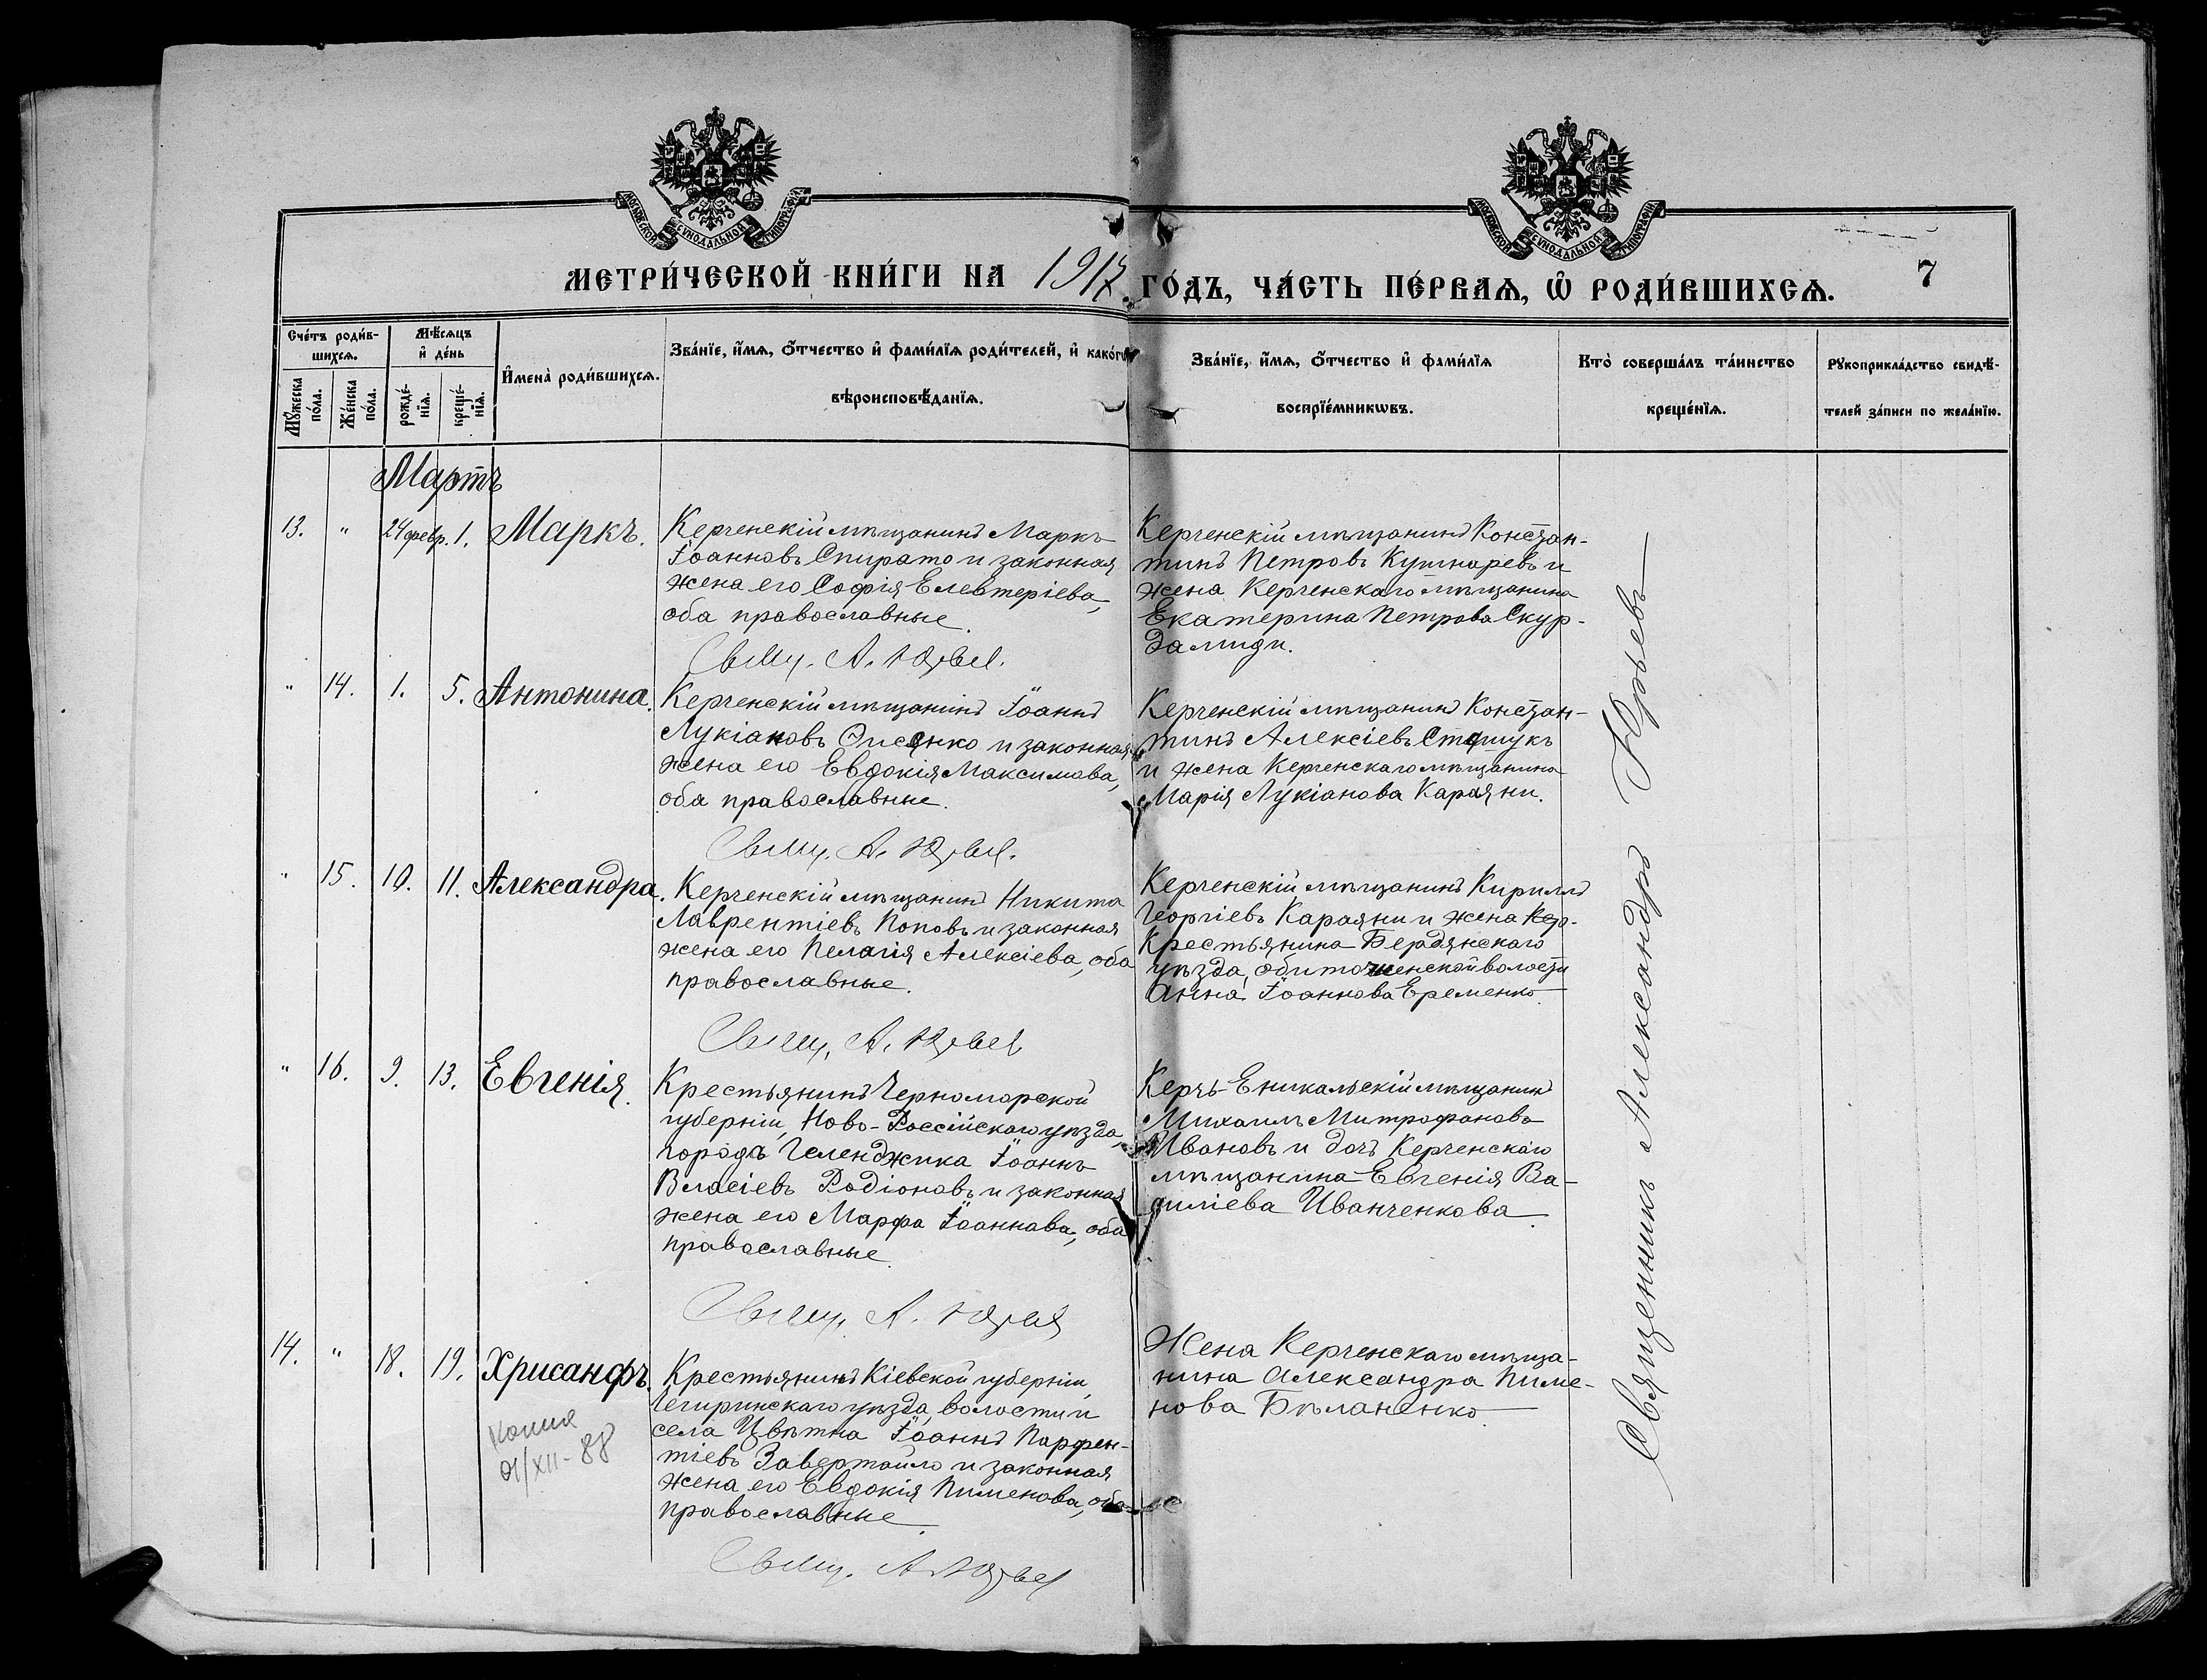 МОСКОВСКОЙ СѴНОДАЛЬНОЙ ТИПОГРАФІИ
МОСКОВСКОЙ СѴНОДАЛЬНОЙ ТИПОГРАФІИ
МЕТРИ́ЧЕСКОЙ КНИ́ГИ НА 1917 ГО́ДЪ, ЧА́СТЬ ПЕ́РВАѦ, Ѡ҆ РОДИ́ВШИХСѦ.
7
Сче́тъ роди́в-
шихсѧ.
Мꙋ́жеска
по́ла.
Же́нска
по́ла.
Мѣ́сѧцъ
и҆ де́нь
рожде́-
нїѧ.
креще́-
нїѧ.
И҆мена̀ роди́вшихсѧ.
Зва́нїе, и҆́мѧ, ѻ҆́тчество и҆ фами́лїѧ роди́телей, и҆ како́гѡ
вѣроисповѣ́данїѧ.
Зва́нїе, и҆́мѧ, ѻ҆́тчество и҆ фами́лїѧ
воспрїе́мникѡвъ.
Кто̀ соверша́лъ та́инство
креще́нїѧ.
Рꙋкоприкла́дство свидѣ́-
телей за́писи по жела́нїю.
Мартъ
13. " 24 февр. 1. Маркъ.
Керченскій мѣщанинъ Маркъ
Іоанновъ Спирато и законная
жена его Софія Елевтеріева,
оба православные.
Свящ. А. Юрьев.
Керченскій мѣщанинъ Констан-
тинъ Петровъ Кушнаревъ и
жена Керченскаго мѣщанина
Екатерина Петрова Скур-
далиди.
" 14. 1. 5. Антонина.
Керченскій мѣщанинъ Іоаннъ
Лукіановъ Онисенко и законная
жена его Евдокія Максимова,
оба православные.
Свящ. А. Юрьев.
Керченскій мѣщанинъ Констан-
тинъ Алексіевъ Сташукъ
и жена Керченскаго мѣщанина
Марія Лукіанова Караяни.
" 15. 10. 11. Александра.
Керченскій мѣщанинъ Никита
Лаврентіевъ Поповъ и законная
жена его Пелагія Алексіева, оба
православные.
Свящ. А. Юрьев
Керченскій мѣщанинъ Кириллъ
Георгіевъ Караяни и жена Кер-
Крестьянина Бердянскаго
уѣзда, Обиточенской волости
Анна Іоаннова Еременко
" 16. 9. 13. Евгенія.
Крестьянинъ Черноморской
губерніи, Ново-Россійскаго уѣзда,
города Геленджика Іоаннъ
Власіевъ Родіоновъ и законная
жена его Марфа Іоаннова, оба
православные
Свящ. А. Юрьев
Керчь-Еникальскій мѣщанинъ
Михаилъ Митрофановъ
Ивановъ и дочь Керченскаго
мѣщанина Евгенія Ва-
силіева Иванченкова
14. " 18. 19. Хрисанфъ.
Копия
01/XII-88
Крестьянинъ Кіевской губерніи,
Чегиринскаго уѣзда, волости и
села Цвѣтна Іоаннъ Парфен-
тіевъ Завертайло и законная
жена его Евдокія Пименова, оба
православные
Свящ. А. Юрьев
Жена Керченскаго мѣща-
нина Александра Пиме-
нова Бѣланенко
Священникъ Александръ Юрьевъ